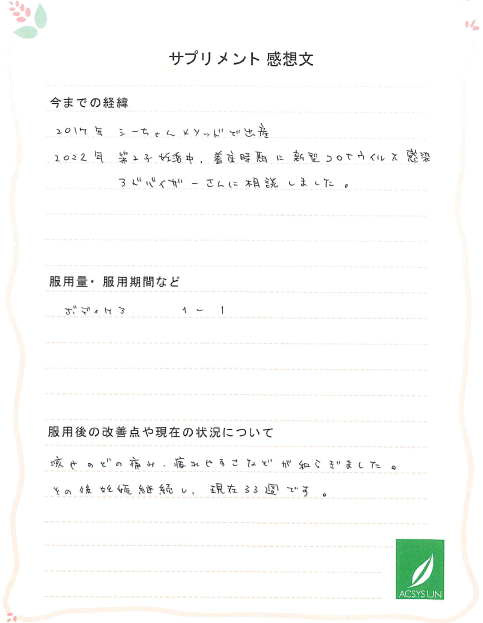 サプリメント 感想文
今までの経緯
2017年 シーちゃんメソッドで出産
2022年 第2子妊活中、着床時期に新型コロナウイルス感染
アドバイザーさんに相談しました。
服用量・服用期間など
1 - 1
服用後の改善点や現在の状況について
咳やのどの痛み、疲れやすさなどが和らぎました。
その後妊娠継続し、現在33週です。
ACSYSUN